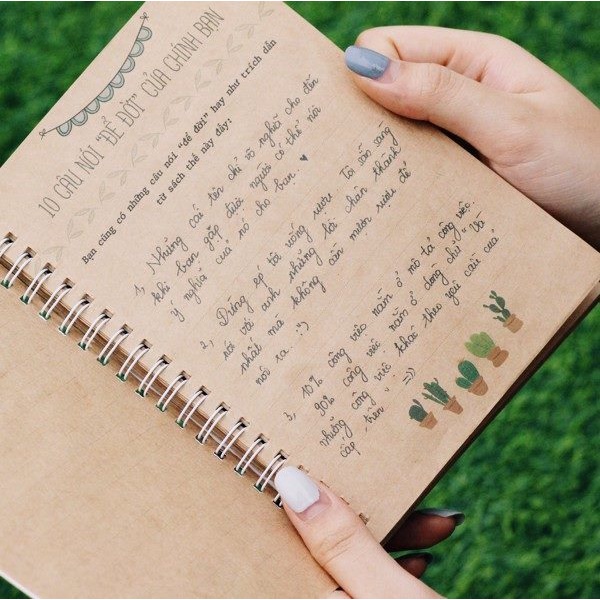 10 CÂU NÓI "ĐỂ ĐỜI" CỦA CHÍNH BẠN
Bạn cũng có những câu nói "để đời" hay như trích dẫn
từ sách thế này đây:
1, Những cái tên chỉ vô nghĩa cho đến
khi bạn gặp được người có thể nói
ý nghĩa của nó cho bạn. ♥
2, Đừng ép tôi uống rượu. Tôi sẵn sàng
nói với anh những lời chân thành
nhất mà không cần mượn rượu để
nói ra. :")
3, 10% công việc nằm ở mô tả công việc.
90% công việc nằm ở dòng chữ "Và
những công việc khác theo yêu cầu của
cấp trên". =))